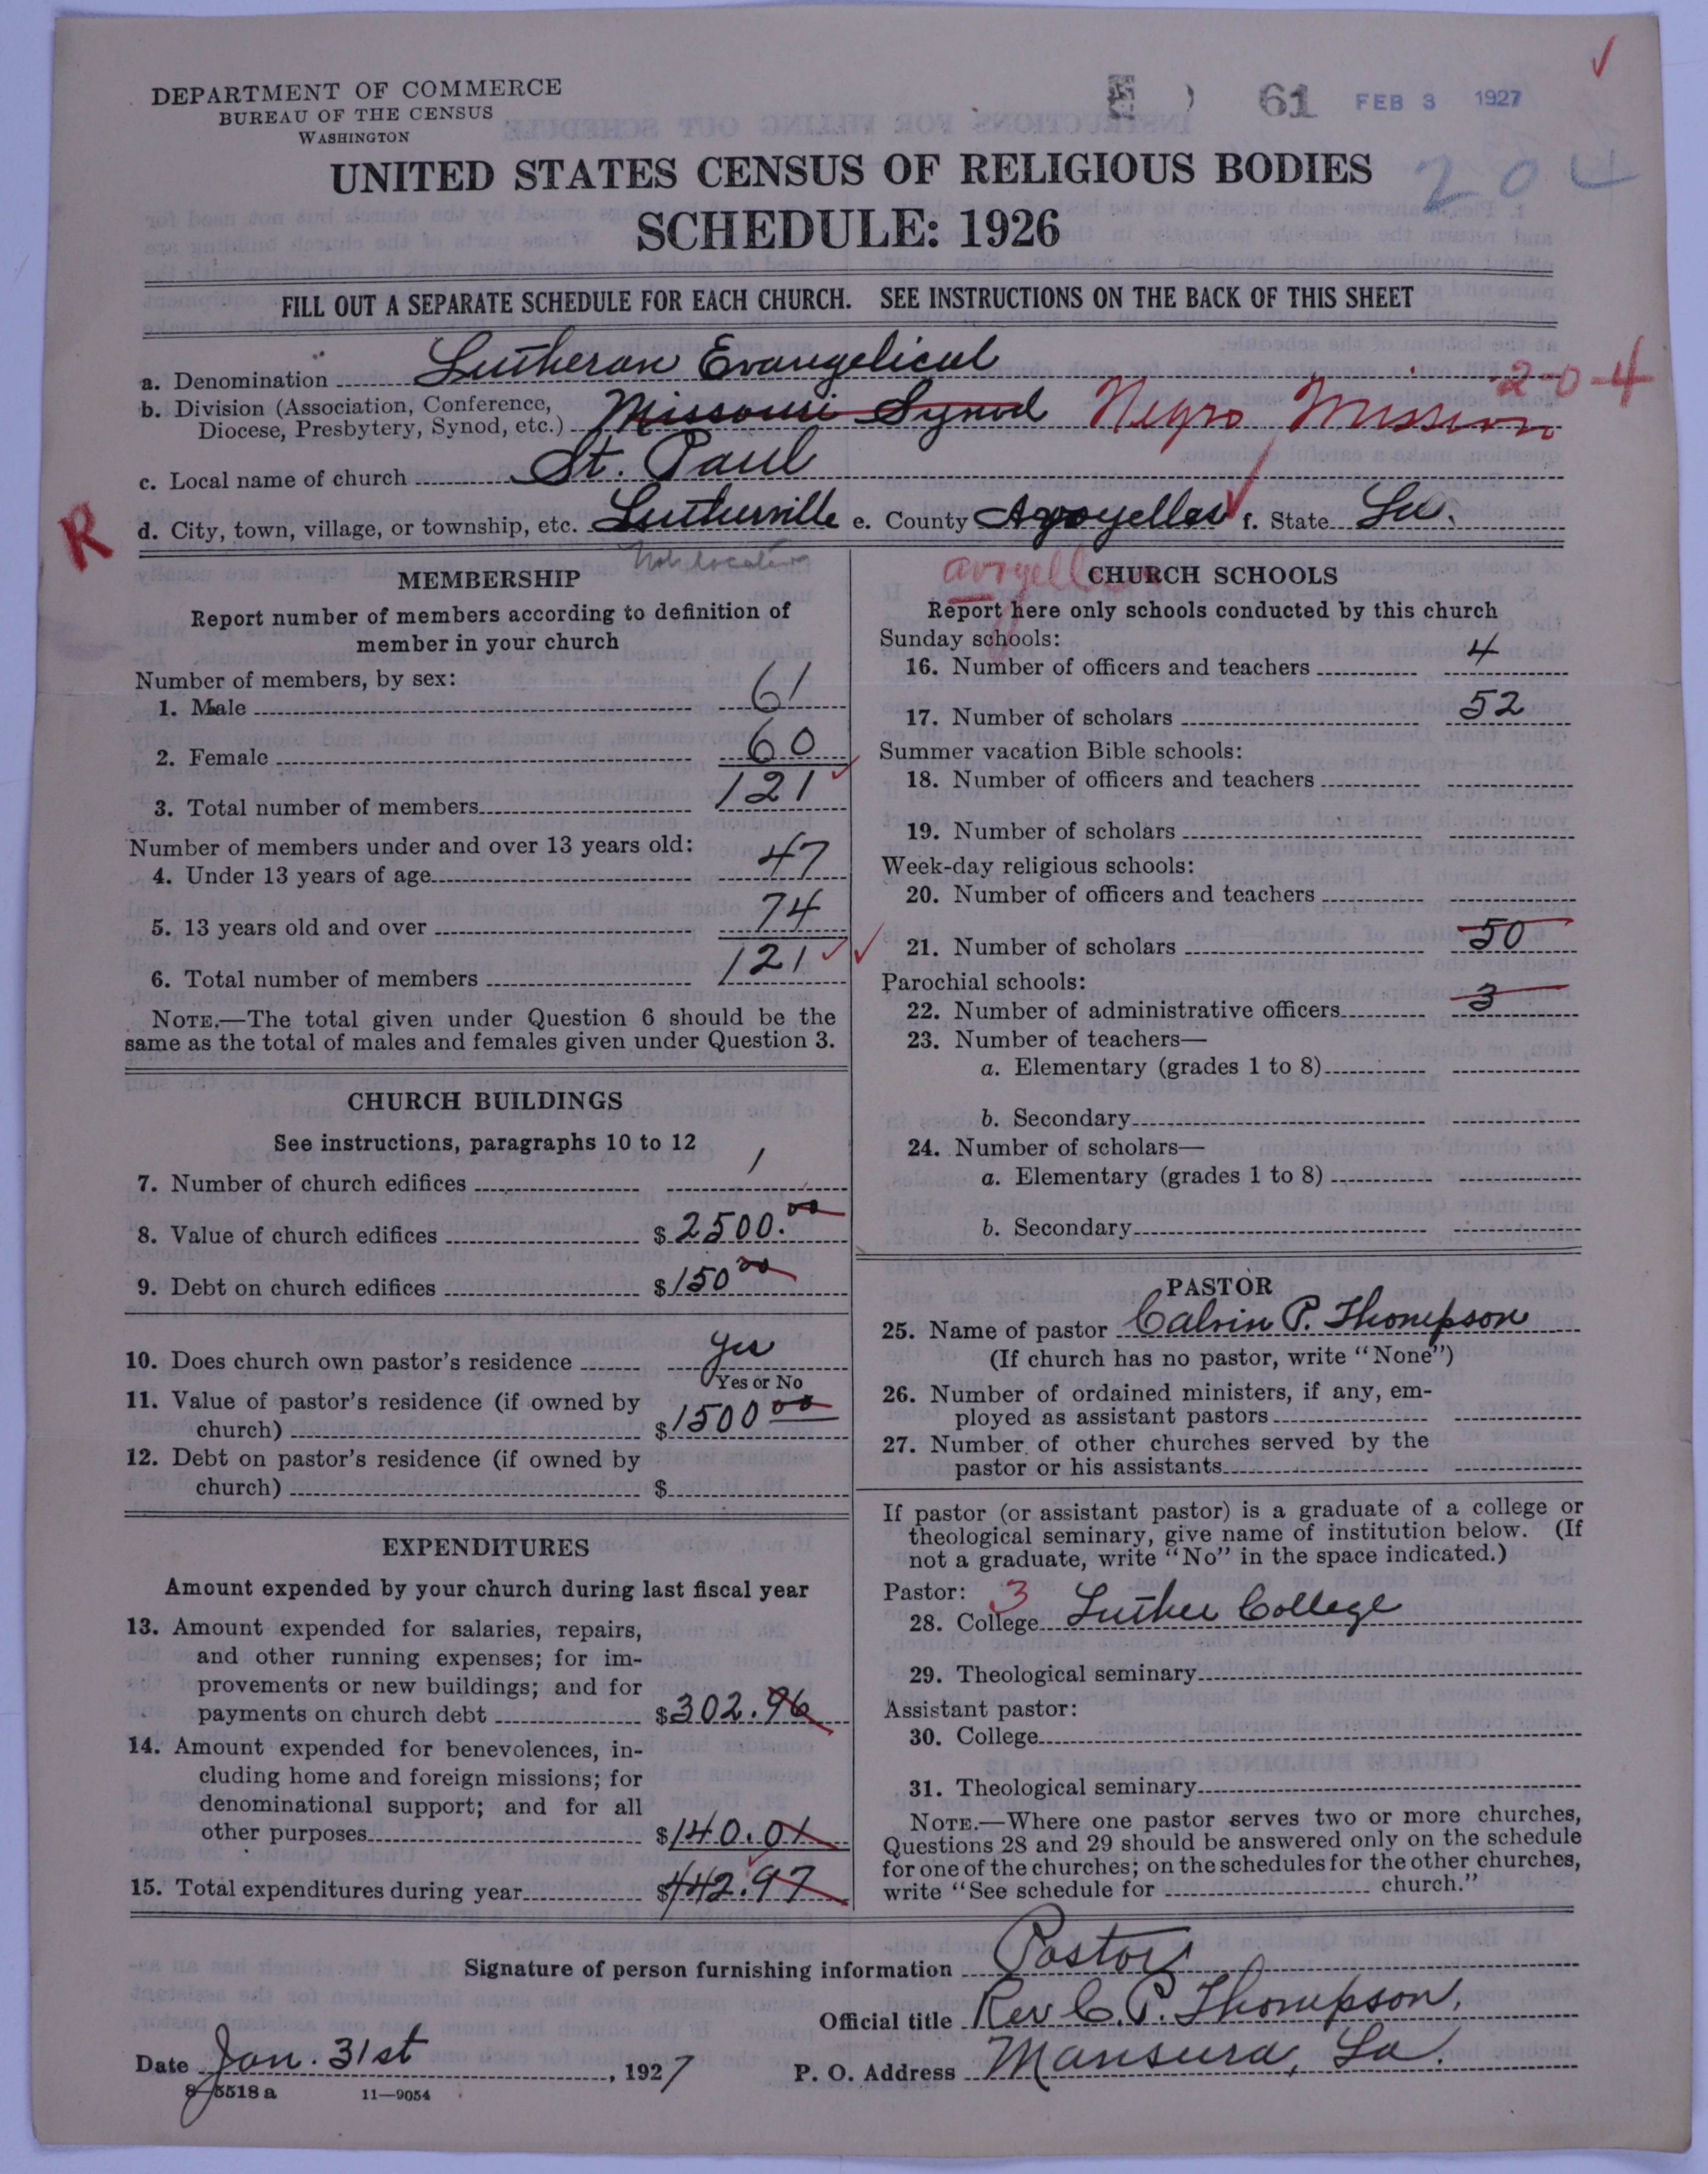 DEPARTMENT OF COMMERCE
BUREAU OF THE CENSUS
WASHINGTON
61 FEB 3 1927
204
UNITED STATES CENSUS OF RELIGIOUS BODIES
SCHEDULE: 1926
FILL OUT A SEPARATE SCHEDULE FOR EACH CHURCH. SEE INSTRUCTIONS ON THE BACK OF THIS SHEET
a. Denomination Lutheran Evangelical
2-0-4
b. Division (Association, Conference, Diocese, Presbytery, Synod, etc.) Missouri Synod Negro Mission
c. Local name of church St. Paul
R
d. City, town, village, or township, etc. Lutherville e. County Avoyelles f. State La.
MEMBERSHIP
Report number of members according to definition of
member in your church
Number of members, by sex:
1. Male 61
2. Female 60
3. Total number of members 121
Number of members under and over 13 years old:
4. Under 13 years of age 47
5. 13 years old and over 74
6. Total number of members 121
NOTE.—The total given under Question 6 should be the
same as the total of males and females given under Question 3.
CHURCH BUILDINGS
See instructions, paragraphs 10 to 12
7. Number of church edifices 1
8. Value of church edifices $2500.00
9. Debt on church edifices $150 00
10. Does church own pastor's residence Yes
Yes or No
11. Value of pastor's residence (if owned by
church) $1500 00
12. Debt on pastor's residence (if owned by
church) $
EXPENDITURES
Amount expended by your church during last fiscal year
13. Amount expended for salaries, repairs,
and other running expenses; for im-
provements or new buildings; and for
payments on church debt $302.96
14. Amount expended for benevolences, in-
cluding home and foreign missions; for
denominational support; and for all
other purposes $140.01
15. Total expenditures during year $442.97
Avoyelles
CHURCH SCHOOLS
Report here only schools conducted by this church
Sunday schools:
16. Number of officers and teachers 4
17. Number of scholars 52
Summer vacation Bible schools:
18. Number of officers and teachers
19. Number of scholars
Week-day religious schools:
20. Number of officers and teachers
21. Number of scholars 50
Parochial schools:
22. Number of administrative officers 3
23. Number of teachers—
a. Elementary (grades 1 to 8)
b. Secondary
24. Number of scholars—
a. Elementary (grades 1 to 8)
b. Secondary
PASTOR
25. Name of pastor Calvin P. Thompson
(If church has no pastor, write "None")
26. Number of ordained ministers, if any, em-
ployed as assistant pastors
27. Number of other churches served by the
pastor or his assistants
If pastor (or assistant pastor) is a graduate of a college or
theological seminary, give name of institution below. (If
not a graduate, write "No" in the space indicated.)
Pastor: 3
28. College Luther College
29. Theological seminary
Assistant pastor:
30. College
31. Theological seminary
NOTE.—Where one pastor serves two or more churches,
Questions 28 and 29 should be answered only on the schedule
for one of the churches; on the schedules for the other churches,
write "See schedule for church."
Signature of person furnishing information Pastor
Official title Rev C. P. Thompson,
Date Jan. 31st, 1927 P. O. Address Mansura, La.
8-5518 a 11—9054